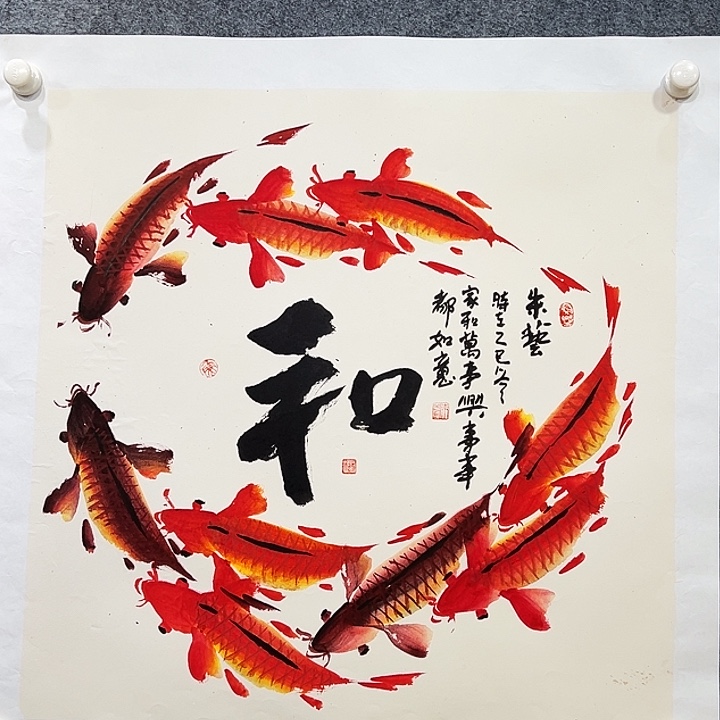 和
朱藝
時在乙巳冬
家和萬事興事事
都如意